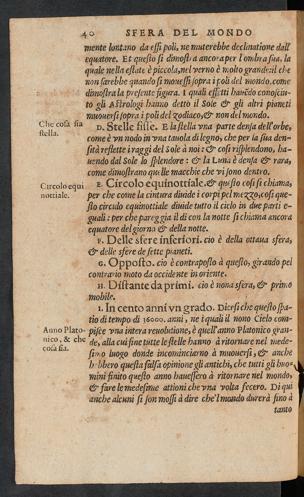 40 SFERA DEL MONDO
mente lontano da essi poli, ne muterebbe declinatione dall'
equatore. Et questo si dimostra ancora per l'ombra sua, la
quale nella estate è piccola, nel verno è molto grande: il che
non sarebbe quando si mouessi sopra i poli del mondo, come
dimostra la presente figura. I quali effetti hauēdo conosciu-
to gli Astrologi hanno detto il Sole & gli altri pianeti
mouuersi sopra i poli del zodiaco, & non del mondo.
Che cosa sia
stella.
D. Stelle fisse. E la stella vna parte densa dell'orbe,
come è vn nodo in vna tauola di legno, che per la sua den-
sità reflette i raggi del Sole à noi: & cosi risplendono, ha-
uendo dal Sole lo splendore: & la Luna è densa & rara,
come dimostrano quelle macchie che vi sono dentro.
Circolo equi
nottiale.
E. Circolo equinottiale. & questo cosi si chiama,
per che come la cintura diuide i corpi pel mezzo, cosi que-
sto circulo equinottiale diuide tutto il cielo in due parti e-
guali: per che pareggia il dì con la notte si chiama ancora
equatore del giorno & della notte.
F. Delle sfere inferiori. cio è della ottaua sfera,
& delle sfere de sette pianeti.
G. Opposto. cio è contraposto à questo, girando pel
contrario moto da occidente in oriente.
H. Distante da primi. cio è nona sfera, & primo
mobile.
I. In cento anni vn grado. Dicesi che questo spa-
tio di tempo di 36000. anni, ne i quali il nono Cielo com-
Anno Plato-
nico, & che
cosa sia.
pisce vna intera reuolutione, è quell'anno Platonico gran-
de, alla cui fine tutte le stelle hanno à ritornare nel mede-
simo luogo donde incominciarno à muouersi, & anche
hebbero questa falsa opinione gli antichi, che tutti gli huo-
mini finito questo anno hauessero à ritornare nel mondo,
& fare le medesime attioni che vna volta fecero. Di qui
anche alcuni si son mossi à dire che'l mondo durerà sino à
tanto